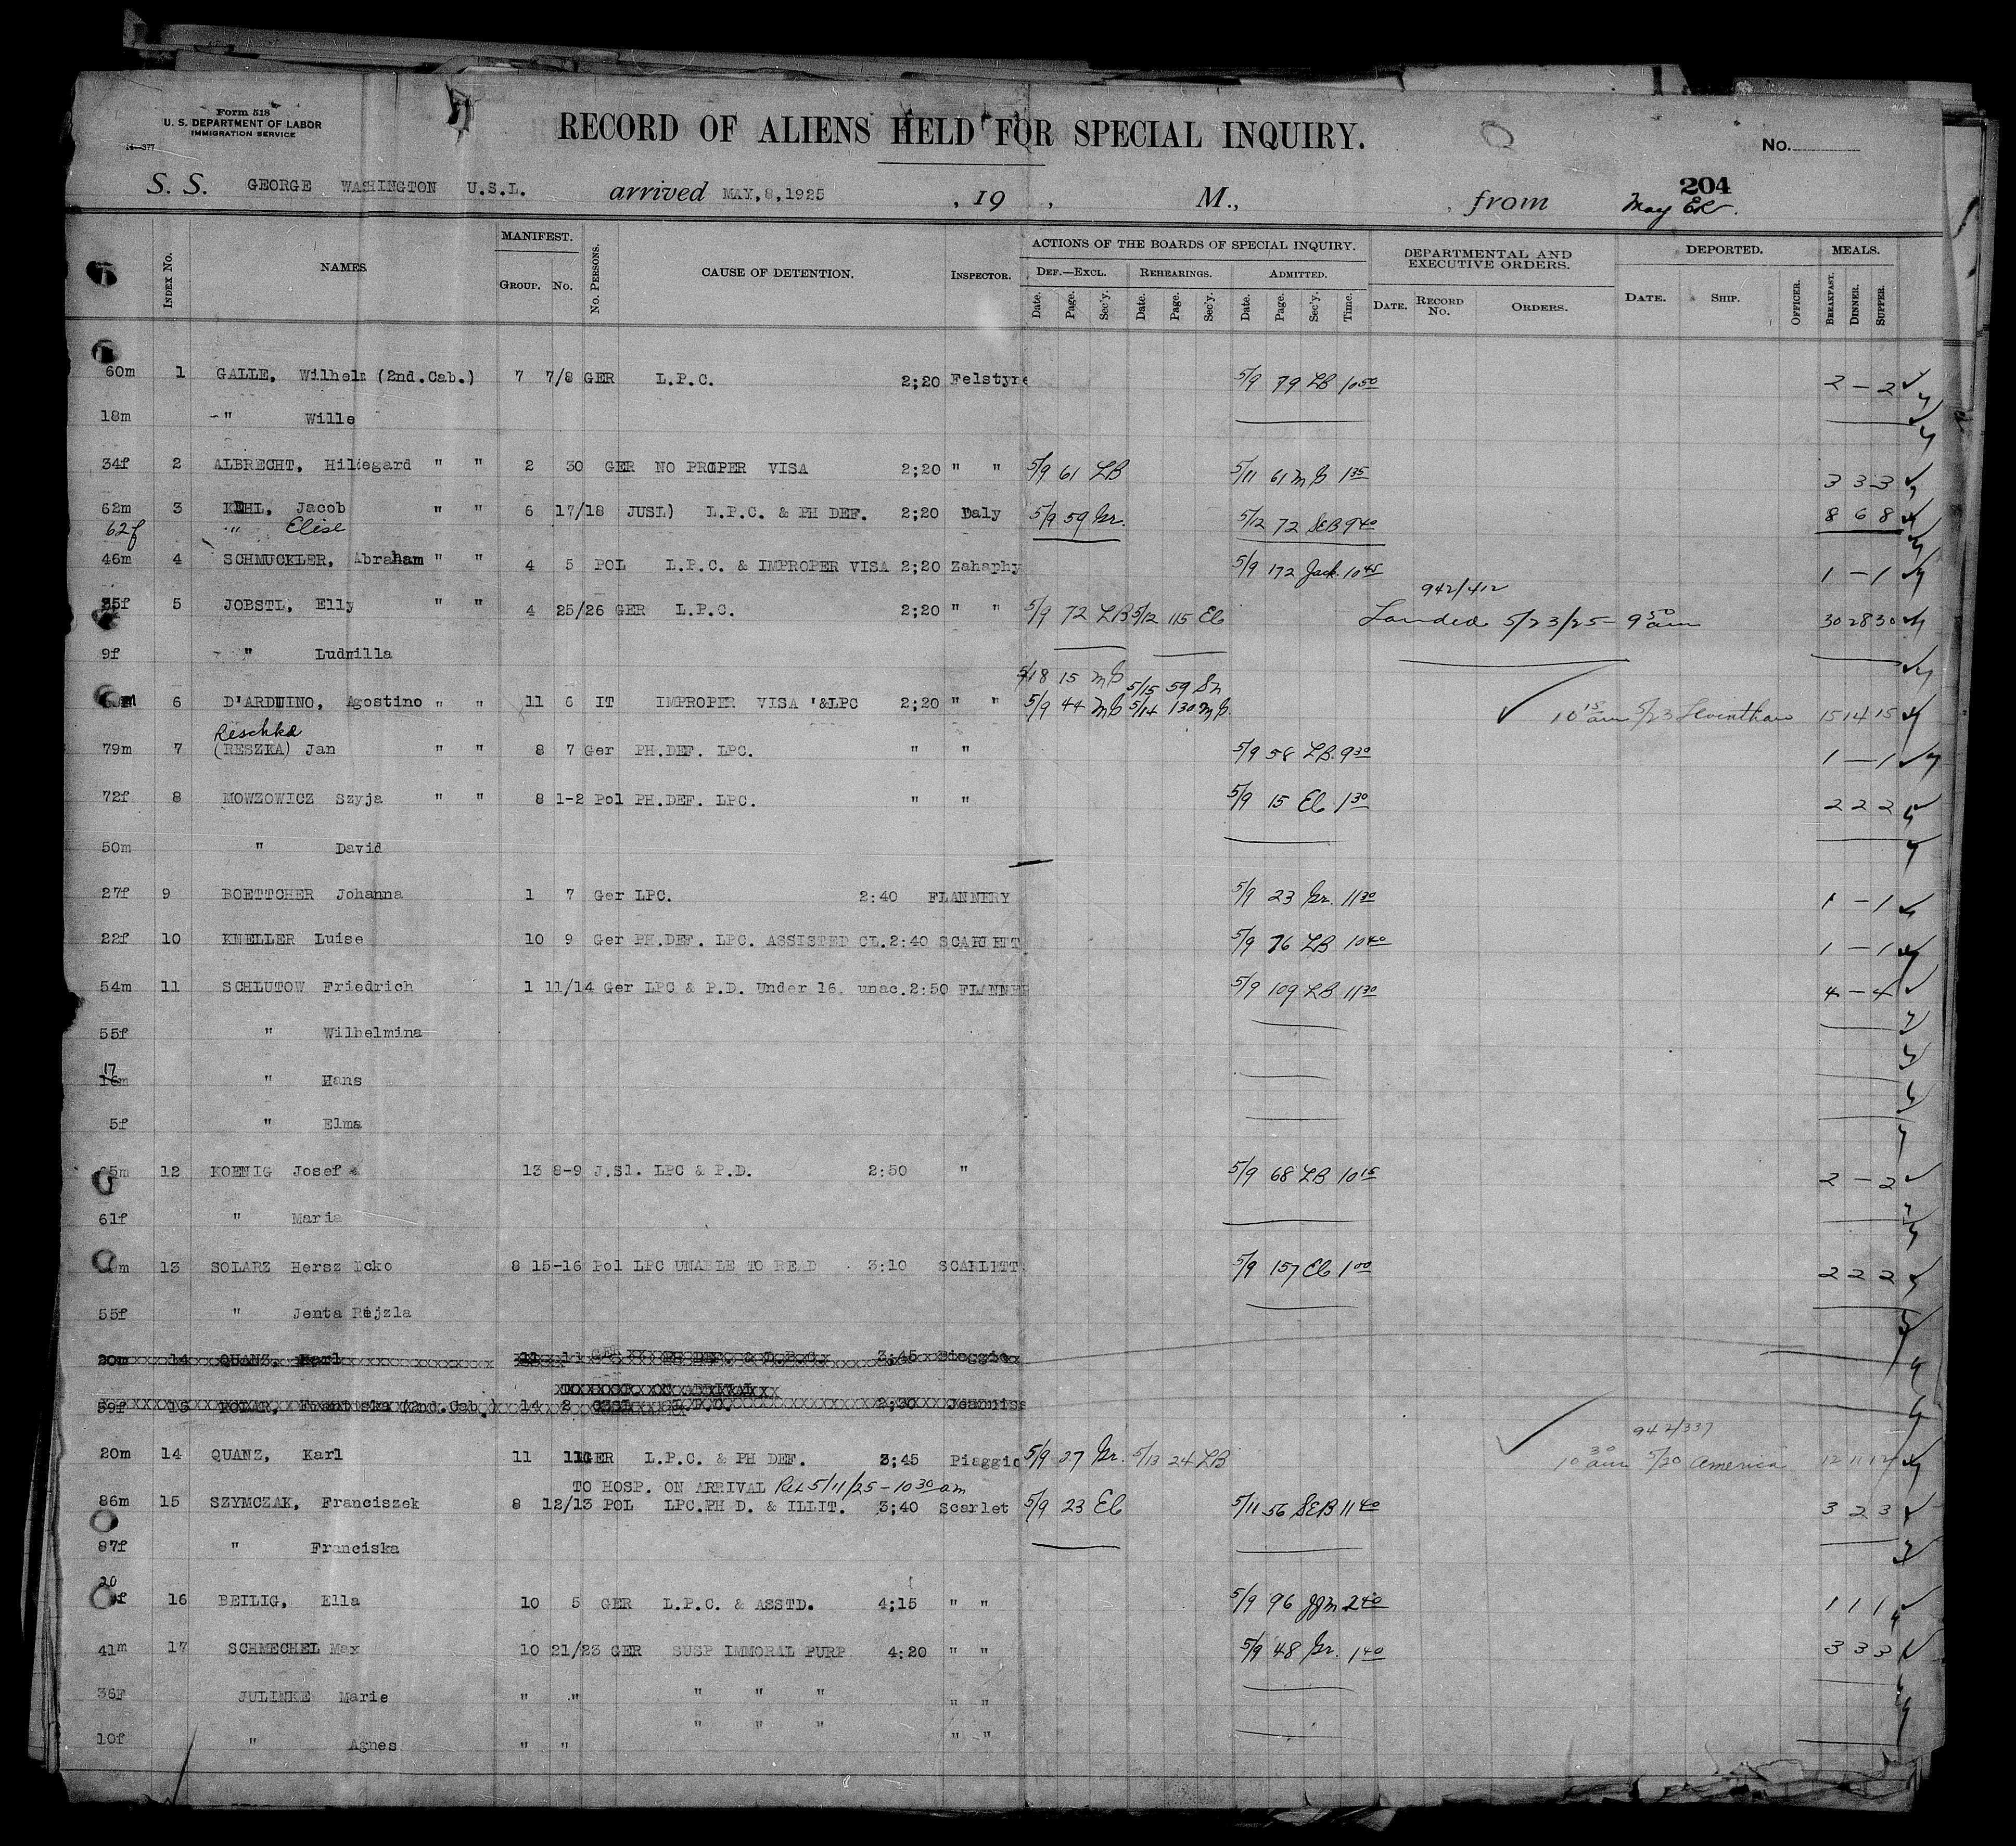 Form 518
U. S. DEPARTMENT OF LABOR
IMMIGRATION SERVICE
14—377
RECORD OF ALIENS HELD FOR SPECIAL INQUIRY.
No.
S. S. GEORGE WASHINGTON U.S.L. arrived MAY,8,1925 , 19 , M., , from 204
May
MANIFEST. ACTIONS OF THE BOARDS OF SPECIAL INQUIRY. DEPARTMENTAL AND EXECUTIVE ORDERS. DEPORTED. MEALS.
INDEX No. NAMES GROUP. No. No. PERSONS. CAUSE OF DETENTION. INSPECTOR. DEF.—EXCL. REHEARINGS. ADMITTED.
Date. Page. Sec'y. Date. Page. Sec'y. Date. Page. Sec'y. Time. DATE. RECORD No. ORDERS. DATE. SHIP. OFFICER. BREAKFAST. DINNER. SUPPER.
60m 1 GALLE, Wilhelm (2nd.Cab.) 7 7/8 GER L.P.C. 2;20 Felstyne 5/9 79 LB 10 50 2 — 2
18m " Wille
34f 2 ALBRECHT, Hildegard " " 2 30 GER NO PROPER VISA 2;20 " " 5/9 61 LB 5/11 61 1 35 3 3 3
62m 3 KEHL, Jacob " " 6 17/18 JUSL) L.P.C. & PH DEF. 2;20 Daly 5/9 59 Gr. 5/12 72 SEB 9 40 8 6 8
62f " Elise
46m 4 SCHMUCKLER, Abraham " " 4 5 POL L.P.C. & IMPROPER VISA 2;20 Zahaphy 5/9 172 Jack. 10 45 1 — 1
942/412
35f 5 JOBSTL, Elly " " 4 25/26 GER L.P.C. 2;20 " " 5/9 72 LB 5/12 115 Eb Landed 5/23/25 9 50 am 30 28 30
9f " Ludmilla
5/18 15 5/15 59
6 D'ARDUINO, Agostino " " 11 6 IT IMPROPER VISA '&LPC 2;20 " " 5/9 44 5/14 130 10 15 am 5/23 Leviathan 15 14 15
Reschka
79m 7 (RESZKA) Jan " " 8 7 Ger PH.DEF. LPC. " " 5/9 58 LB. 9 30 1 — 1
72f 8 MOWZOWICZ Szyja " " 8 1-2 Pol PH.DEF. LPC. " " 5/9 15 Eb 1 30 2 2 2
50m " David
27f 9 BOETTCHER Johanna 1 7 Ger LPC. 2:40 FLANNERY 5/9 23 Gr. 11 30 1 — 1
22f 10 KNELLER Luise 10 9 Ger PH.DEF. LPC. ASSISTED CL.2:40 SCARLETT 5/9 76 LB 10 40 1 — 1
54m 11 SCHLUTOW Friedrich 1 11/14 Ger LPC & P.D. Under 16. unac.2:50 FLANNER 5/9 109 LB 11 30 4 — 4
55f " Wilhelmina
17
16m " Hans
5f " Elma
12 KOENIG Josef 13 8-9 J.Sl. LPC & P.D. 2:50 " 5/9 68 LB 10 15 2 — 2
61f " Maria
13 SOLARZ Hersz Icko 8 15-16 Pol LPC UNABLE TO READ 3:10 SCARLETT 5/9 157 Eb 1 00 2 2 2
55f " Jenta Rejzla
20m 14 QUANZ, Karl 11 11 GER PH DEF. & L.P.C. 3;45 Piaggio
ON ARRIVAL
59f 15 Franciska (2nd.Cab.) 14 2 CZSL L.P.C. 2;30
942/337
20m 14 QUANZ, Karl 11 11 GER L.P.C. & PH DEF. 3;45 Piaggio 5/9 27 Gr. 5/13 24 LB 10 30 am 5/20 America 12 11 12
TO HOSP. ON ARRIVAL Ret 5/11/25 - 10 30 am
86m 15 SZYMCZAK, Franciszek 8 12/13 POL LPC.PH D. & ILLIT. 3;40 Scarlet 5/9 23 Eb 5/11 56 SEB 11 40 3 2 3
87f " Franciska
20
f 16 BEILIG, Ella 10 5 GER L.P.C. & ASSTD. 4;15 " " 5/9 96 JJM 2 40 1 1 1
41m 17 SCHMECHEL Max 10 21/23 GER SUSP IMMORAL PURP 4:20 " " 5/9 48 Gr. 1 40 3 3 3
36F JULINKE Marie " " " " " " "
" " " " "
10f " Agnes " "